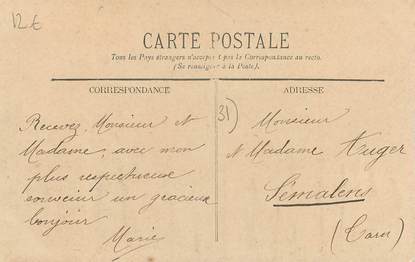 12€
CARTE POSTALE
Tous les Pays étrangers n'acceptent pas la Correspondance au recto.
(Se renseigner à la Poste).
CORRESPONDANCE
Recevez, Monsieur et
Madame, avec mon
plus respectueuse
souvenir un gracieux
bonjour
Marie
31)
ADRESSE
Monsieur
et Madame Auger
Sémalens
(Tarn)